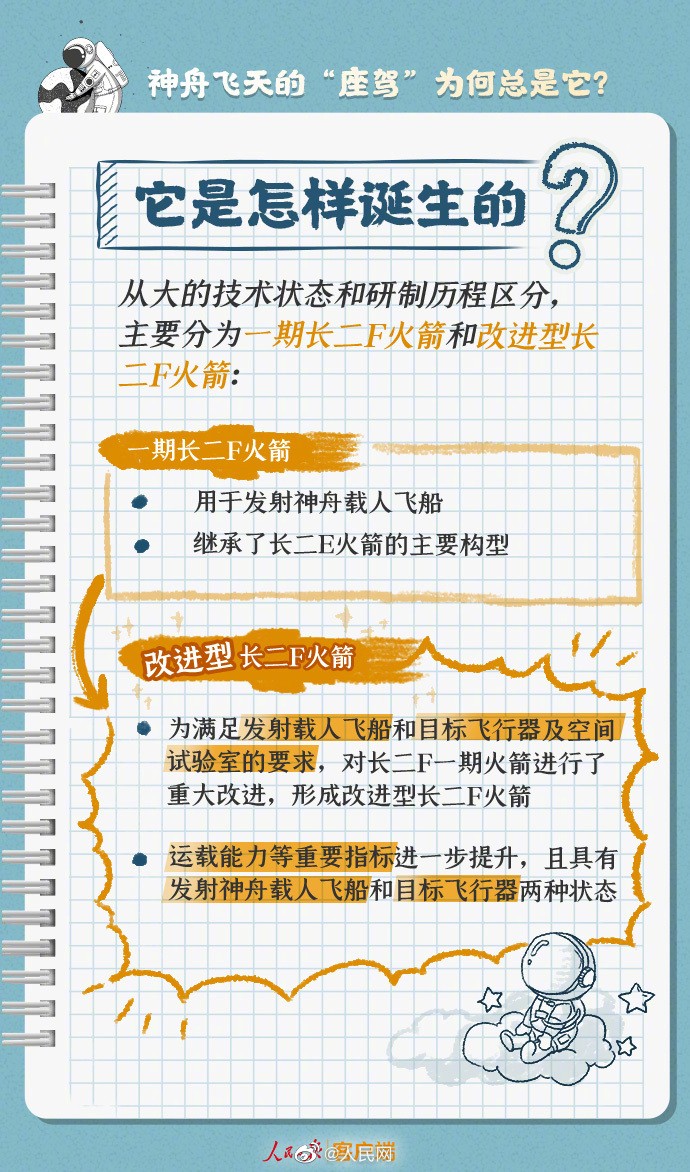 神舟飞天的“座驾”为何总是它?
它是怎样诞生的?
从大的技术状态和研制历程区分，
主要分为一期长二F火箭和改进型长
二F火箭:
一期长二F火箭
用于发射神舟载人飞船
继承了长二E火箭的主要构型
改进型 长二F火箭
为满足发射载人飞船和目标飞行器及空间
试验室的要求，对长二F一期火箭进行了
重大改进，形成改进型长二F火箭
运载能力等重要指标进一步提升，且具有
发射神舟载人飞船和目标飞行器两种状态
人民 客户端
@人民网